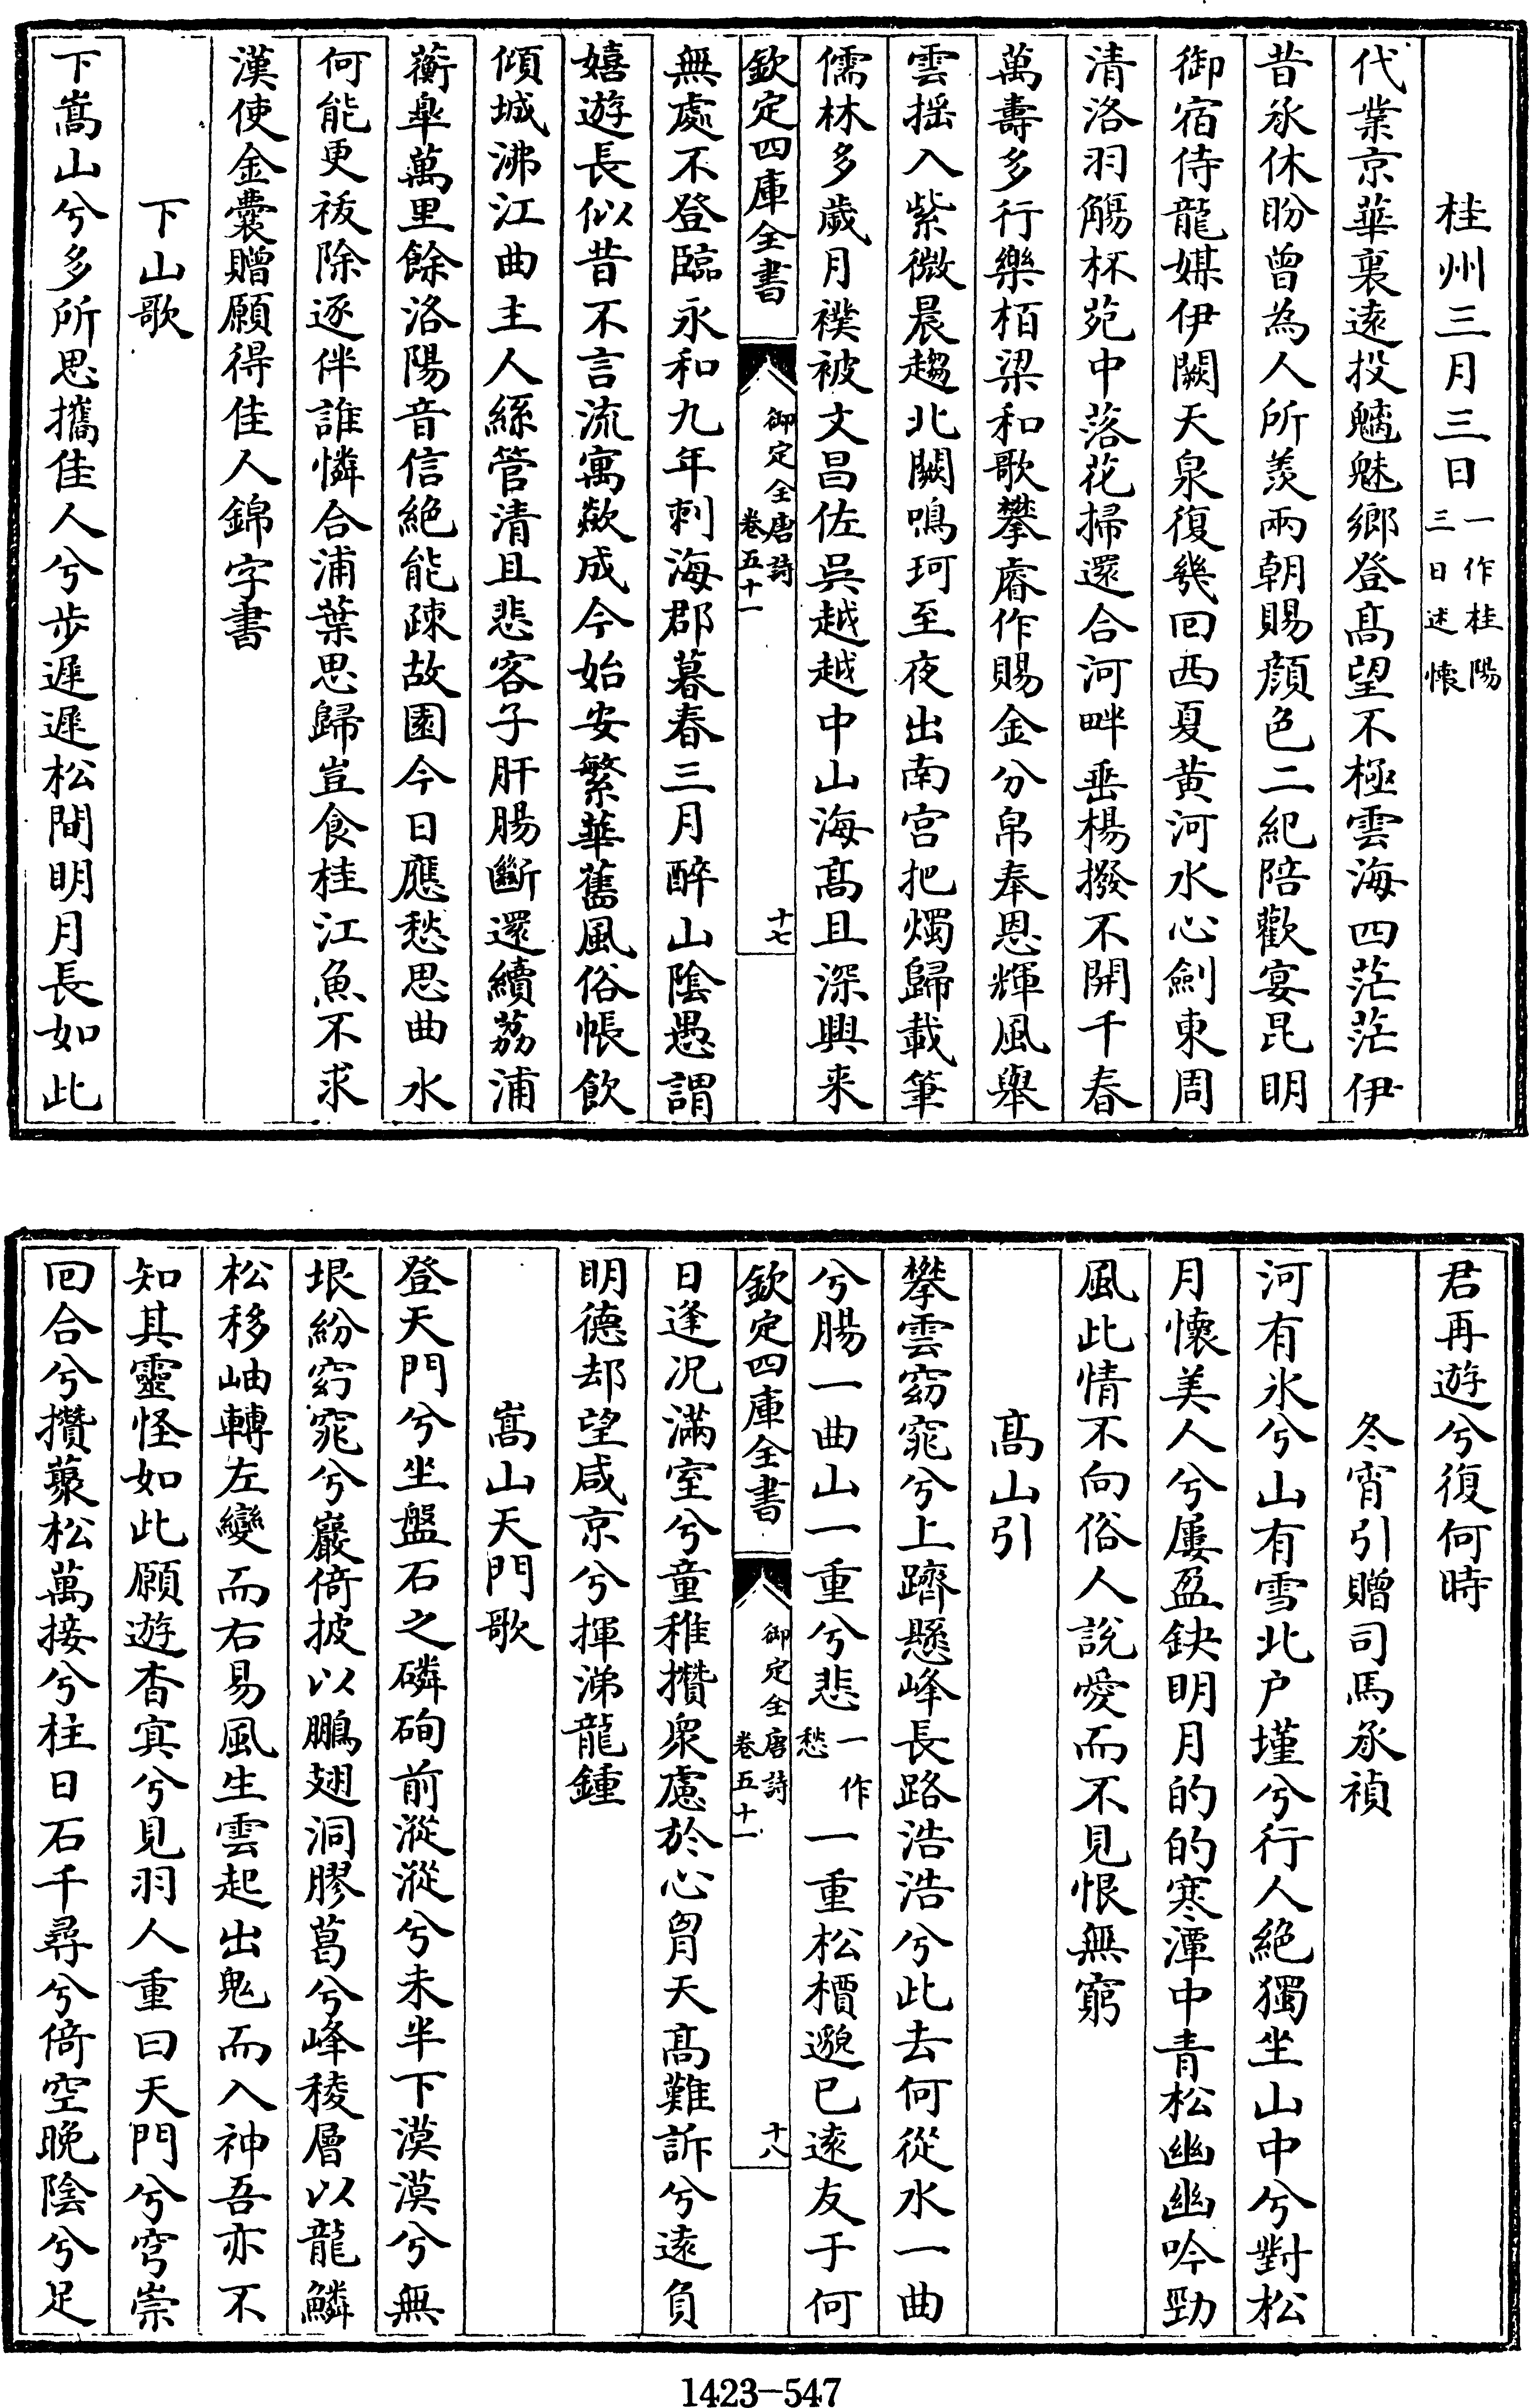 桂州三月三日一作桂陽三日述懷
代業京華裏遠投魑魅鄉登髙望不極雲海四茫茫伊
昔承休盼曾為人所羨兩朝賜顔色二紀陪歡宴昆明
御宿侍龍媒伊闕天泉復幾回西夏黄河水心劍東周
清洛羽觴杯苑中落花掃還合河畔垂楊撥不開千春
萬壽多行樂栢梁和歌攀睿作賜金分帛奉恩輝風舉
雲揺入紫微晨趨北闕鳴珂至夜出南宫把燭歸載筆
儒林多歲月襆被文昌佐吳越越中山海髙且深興来
欽定四庫全書 御定全唐詩卷五十一 十七
無處不登臨永和九年刺海郡暮春三月醉山陰愚謂
嬉遊長似昔不言流寓歘成今始安繁華舊風俗帳飲
傾城沸江曲主人絲管清且悲客子肝腸斷還續荔浦
蘅臯萬里餘洛陽音信絶能疎故園今日應愁思曲水
何能更祓除逐伴誰憐合浦葉思歸豈食桂江魚不求
漢使金囊贈願得佳人錦字書
下山歌
下嵩山兮多所思攜佳人兮步遲遲松間明月長如此
君再遊兮復何時
冬宵引贈司馬承禎
河有氷兮山有雪北户墐兮行人絶獨坐山中兮對松
月懷美人兮屢盈缺明月的的寒潭中青松幽幽吟勁
風此情不向俗人說愛而不見恨無窮
髙山引
攀雲窈窕兮上躋懸峰長路浩浩兮此去何從水一曲
兮腸一曲山一重兮悲一作愁一重松檟邈已遠友于何
欽定四庫全書 御定全唐詩卷五十一 十八
日逢况滿室兮童稚攅衆慮於心胷天髙難訴兮遠負
明德却望咸京兮揮涕龍鍾
嵩山天門歌
登天門兮坐盤石之磷磳前漎漎兮未半下漠漠兮無
垠紛窈窕兮巖倚披以鵬翅洞膠葛兮峰稜層以龍鱗
松移岫轉左變而右易風生雲起出鬼而入神吾亦不
知其靈怪如此願遊杳㝠兮見羽人重曰天門兮穹崇
回合兮攅藂松萬接兮柱日石千尋兮倚空晚陰兮足
1423-547